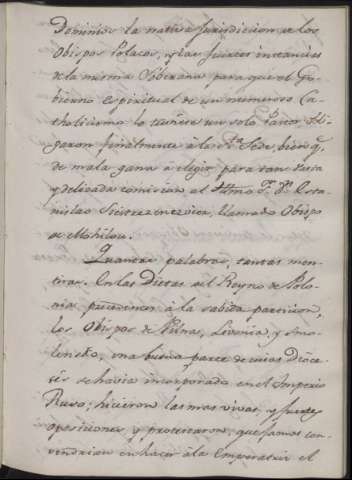 Dominios la nativa Jurisdiccion de los
Obispos Polacos, y las fuertes instancias
de la misma Soberana para que el Go-
bierno Espiritual de un numeroso Ca-
tholicismo lo tuviese un solo Pastor obli-
garon finalmente à la Sta. Sede, bien q.
de mala gana à elegir para tan vasta
y delicada comision al Illmo. Sr. Dn. Esta-
nislao Siestrzencewicz, llamado Obispo
de Mohilou.
Quantas palabras, tantas men-
tiras. En las Dietas del Reyno de Polo-
nia posteriores à la sabida particion,
los Obispos de Vilna, Livonia, y Smo-
lensko, una buena parte de cuias Dioce-
sis se havia incorporado en el Imperio
Ruso, hicieron las mas vivas, y fuertes
oposiciones y protestaron, que jamas con-
vendrian en hacer à la Emperatriz el